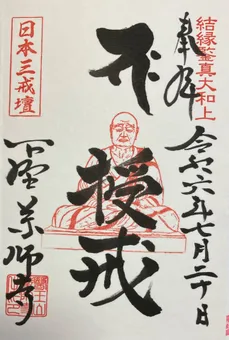 結縁鑒真大和上
奉拝
令和六年七月二十日
授戒
下野薬師寺
日本三戒壇